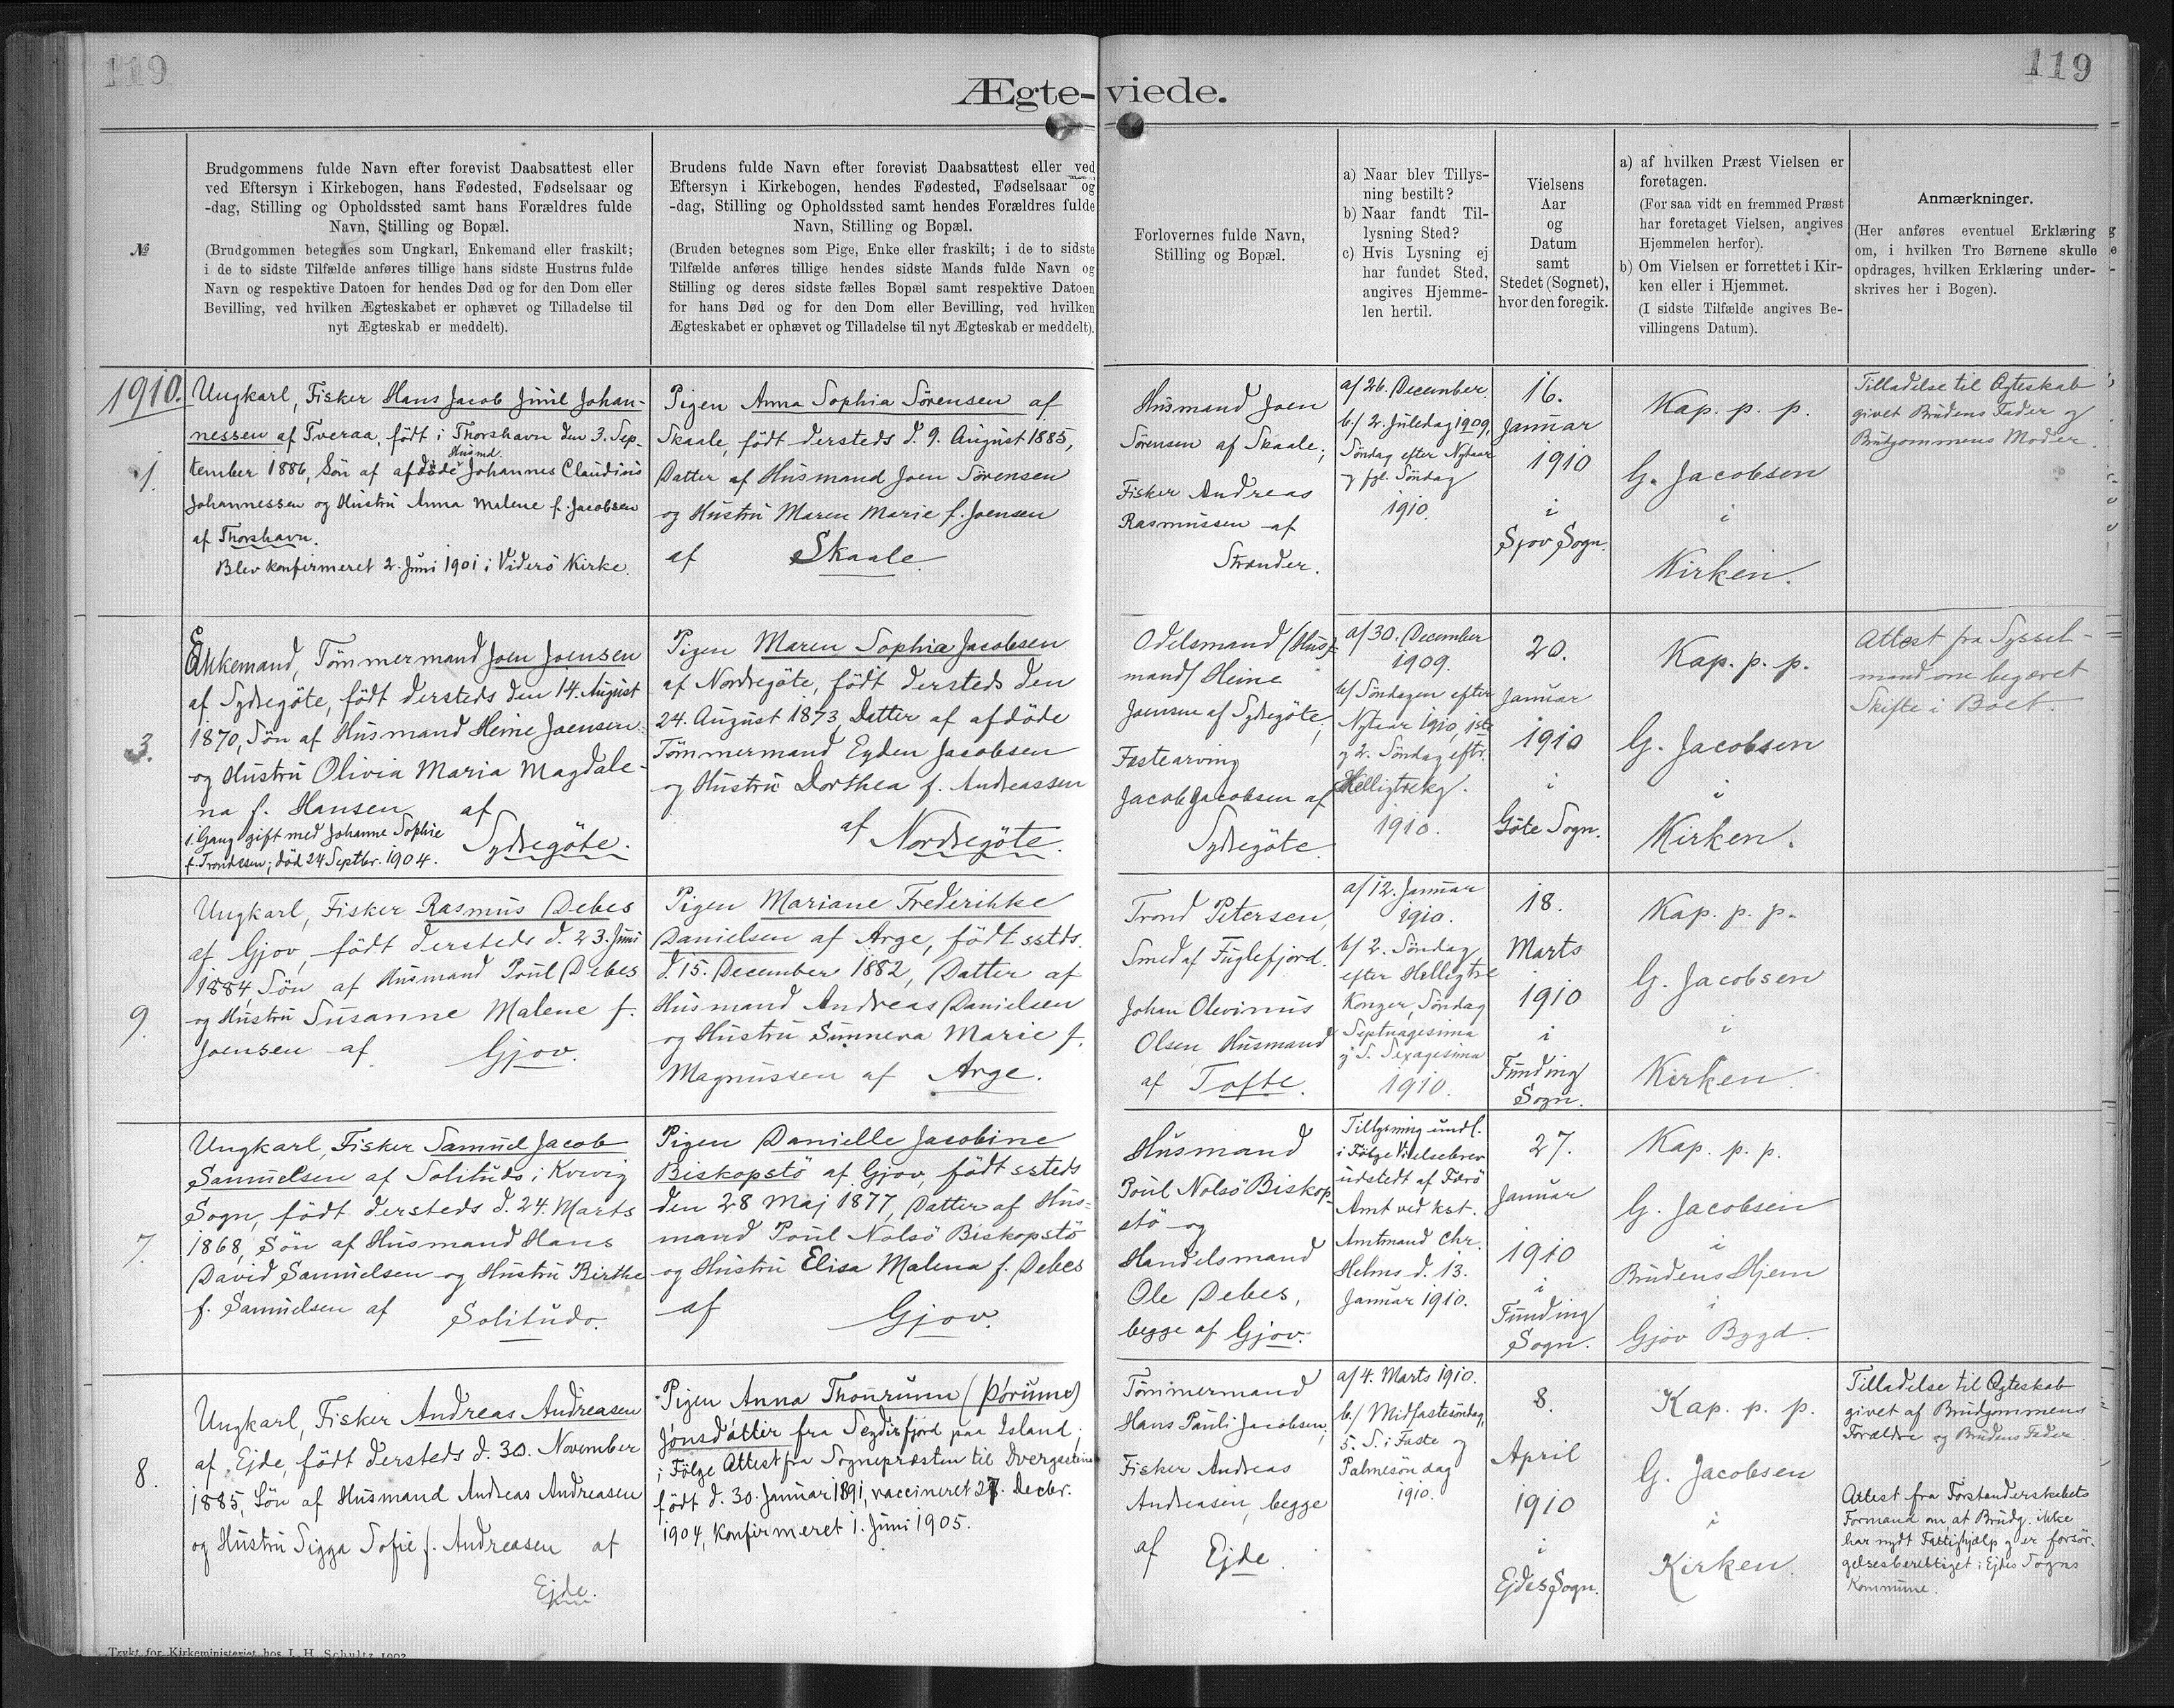 119
119
Ægte-viede.
№
Brudgommens fulde Navn efter forevist Daabsattest eller
ved Eftersyn i Kirkebogen, hans Fødested, Fødselsaar og
-dag, Stilling og Opholdssted samt hans Forældres fulde
Navn, Stilling og Bopæl.
(Brudgommen betegnes som Ungkarl, Enkemand eller fraskilt;
i de to sidste Tilfælde anføres tillige hans sidste Hustrus fulde
Navn og respektive Datoen for hendes Død og for den Dom eller
Bevilling, ved hvilken Ægteskabet er ophævet og Tilladelse til
nyt Ægteskab er meddelt).
Brudens fulde Navn efter forevist Daabsattest eller ved
Eftersyn i Kirkebogen, hendes Fødested, Fødselsaar og
-dag, Stilling og Opholdssted samt hendes Forældres fulde
Navn, Stilling og Bopæl.
(Bruden betegnes som Pige, Enke eller fraskilt; i de to sidste
Tilfælde anføres tillige hendes sidste Mands fulde Navn og
Stilling og deres sidste fælles Bopæl samt respektive Datoen
for hans Død og for den Dom eller Bevilling, ved hvilken
Ægteskabet er ophævet og Tilladelse til nyt Ægteskab er meddelt).
Forlovernes fulde Navn,
Stilling og Bopæl.
a) Naar blev Tillys-
ning bestilt?
b) Naar fandt Til-
lysning Sted?
c) Hvis Lysning ej
har fundet Sted,
angives Hjemme-
len hertil.
Vielsens
Aar
og
Datum
samt
Stedet (Sognet),
hvor den foregik.
a) af hvilken Præst Vielsen er
foretagen.
(For saa vidt en fremmed Præst
har foretaget Vielsen, angives
Hjemmelen herfor).
b) Om Vielsen er forrettet i Kir-
ken eller i Hjemmet.
(I sidste Tilfælde angives Be-
villingens Datum).
Anmærkninger.
(Her anføres eventuel Erklæring
om, i hvilken Tro Børnene skulle
opdrages, hvilken Erklæring under-
skrives her i Bogen).
1910.
1.
Ungkarl, Fisker Hans Jacob Juul Johan-
nessen af Tveraa, født i Thorshavn den 3. Sep-
tember 1886, Søn af afdøde Husmd. Johannes Claudius
Johannessen og Hustru Anna Malene f. Jacobsen
af Thorshavn.
Blev konfirmeret 2. Juni 1901 i Viderö Kirke.
Pigen Anna Sophia Sörensen af
Skaale, født dersteds d. 9. August 1885,
Datter af Husmand Joen Sörensen
og Hustru Maren Marie f. Joensen
af Skaale.
Husmand Joen
Sörensen af Skaale;
Fisker Andreas
Rasmussen af
Strænder.
a/ 26. December.
b/ 2. Juledag 1909,
Søndag efter Nytaar
og fgl. Søndag
1910.
16.
Januar
1910
i
Sjov Sogn.
Kap. p. p.
G. Jacobsen
i
Kirken.
Tilladelse til Ægteskab
givet Brudens Fader og
Brudgommens Moder.
3.
Enkemand, Tömmermand Joen Joensen
af Sydregöte, født dersteds den 14. August
1870, Søn af Husmand Heine Joensen
og Hustru Olivia Maria Magdale-
na f. Hansen af
1. Gang gift med Johanne Sophie
f. Trondesen; död 24 Septbr. 1904. Sydregöte.
Pigen Maren Sophia Jacobsen
af Nordregöte, født dersteds den
24. August 1873, Datter af afdøde
Tömmermand Eyden Jacobsen
og Hustru Dorthea f. Andreassen
af Nordregöte.
Odelsmand (Hus-
mand) Heine
Joensen af Sydregöte;
Fæstearving
Jacob Jacobsen af
Sydregöte.
a/ 30. December
1909.
b/ Søndagen efter
Nytaar 1910, 1ste
og 2. Søndag eftr.
Helligtrekg.
1910.
20.
Januar
1910
i
Göte Sogn.
Kap. p. p.
G. Jacobsen
i
Kirken.
Attest fra Syssel-
mand om begæret
Skifte i Boet.
9.
Ungkarl, Fisker Rasmus Debes
af Gjov, født dersteds d. 23. Juni
1884, Søn af Husmand Poul Debes
og Hustru Susanne Malene f.
Joensen af Gjov.
Pigen Mariane Frederikke
Danielsen af Arge, født sstds.
d. 15. December 1882, Datter af
Husmand Andreas Danielsen
og Hustru Sunneva Marie f.
Magnussen af Arge.
Trond Petersen,
Smed af Fuglefjord.
Johan Olevinus
Olsen Husmand
af Tofte.
a/ 12. Januar
1910.
b/ 2. Søndag
efter Helligtre
Konger, Søndag
Septuagesima
og S. Sexagesima
1910.
18.
Marts
1910
i
Funding
Sogn.
Kap. p. p.
G. Jacobsen
i
Kirken.
7.
Ungkarl, Fisker Samuel Jacob
Samuelsen af Solitudo i Kvivig
Sogn, født dersteds d. 24. Marts
1868, Søn af Husmand Hans
David Samuelsen og Hustru Birthe
f. Samuelsen af Solitudo.
Pigen Danielle Jacobine
Biskopstö af Gjov, født ssteds
den 28 Maj 1877, Datter af Hus-
mand Poul Nolsö Biskopstö
og Hustru Elisa Malena f. Debes
af Gjov.
Husmand
Poul Nolsö Biskop-
stö og
Handelsmand
Ole Debes,
begge af Gjov.
Tillysning undl.
i Følge Vielsebrev
udstedt af Færö
Amt ved kst.
Amtmand Chr.
Helms d. 13.
Januar 1910.
27.
Januar
1910
i
Funding
Sogn.
Kap. p. p.
G. Jacobsen
i
Brudens Hjem
i
Gjov Bygd.
8.
Ungkarl, Fisker Andreas Andreasen
af Ejde, født dersteds d. 30. November
1885, Søn af Husmand Andreas Andreasen
og Hustru Sigga Sofie f. Andreasen af
Ejde.
Pigen Anna Thorunn (Þórunn)
Jónsdóttir fra Seydisfjord paa Island;
i Følge Attest fra Sognepræsten til Dvergasteinn
født d. 30. Januar 1891, vaccineret 27. Decbr.
1904, konfirmeret 1. Juni 1905.
Tömmermand
Hans Pauli Jacobsen;
Fisker Andreas
Andreasen, begge
af Ejde.
a/ 4. Marts 1910.
b/ Midfastesöndag,
5. S. i Faste og
Palmesöndag
1910.
8.
April
1910
i
Ejdes Sogn.
Kap. p. p.
G. Jacobsen
i
Kirken.
Tilladelse til Ægteskab
givet af Brudgommens
Forældre og Brudens Fader.
Attest fra Forstanderskabets
Formand om, at Brudg. ikke
har nydt Fattighjælp og er forsör-
gelsesberettiget i Ejdes Sogns
Kommune.
Trykt for Kirkeministeriet hos J. H. Schultz 1903